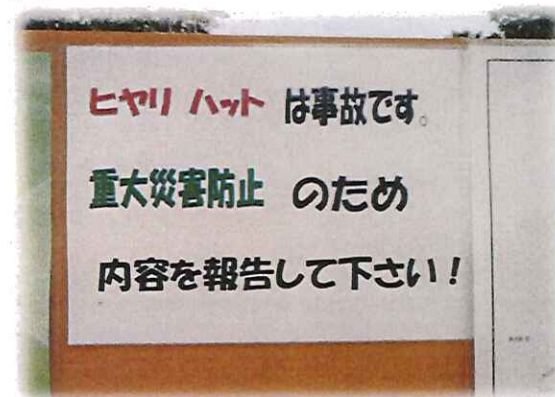 ヒヤリ ハット は事故です。
重大災害防止 のため
内容を報告して下さい！